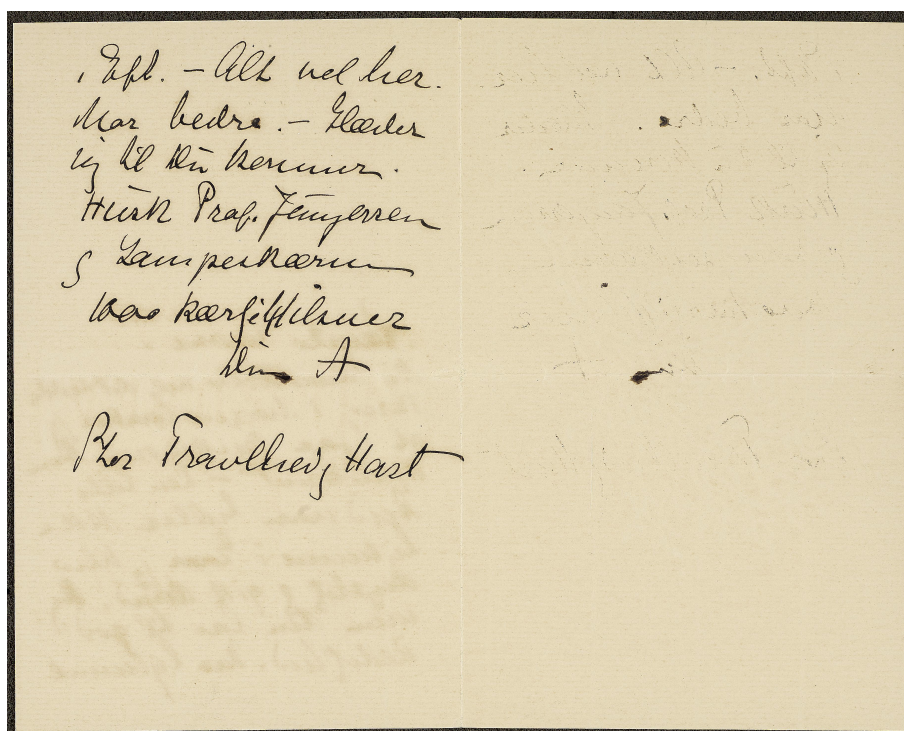 i Eft. – Alt vel her.
Mor bedre. – Glæder
mig til Du kommer.
Husk Prof. Jungersen
og Lampeskærm
1000 kærlig Hilsner
Din A
Stor Travlhed og Hast